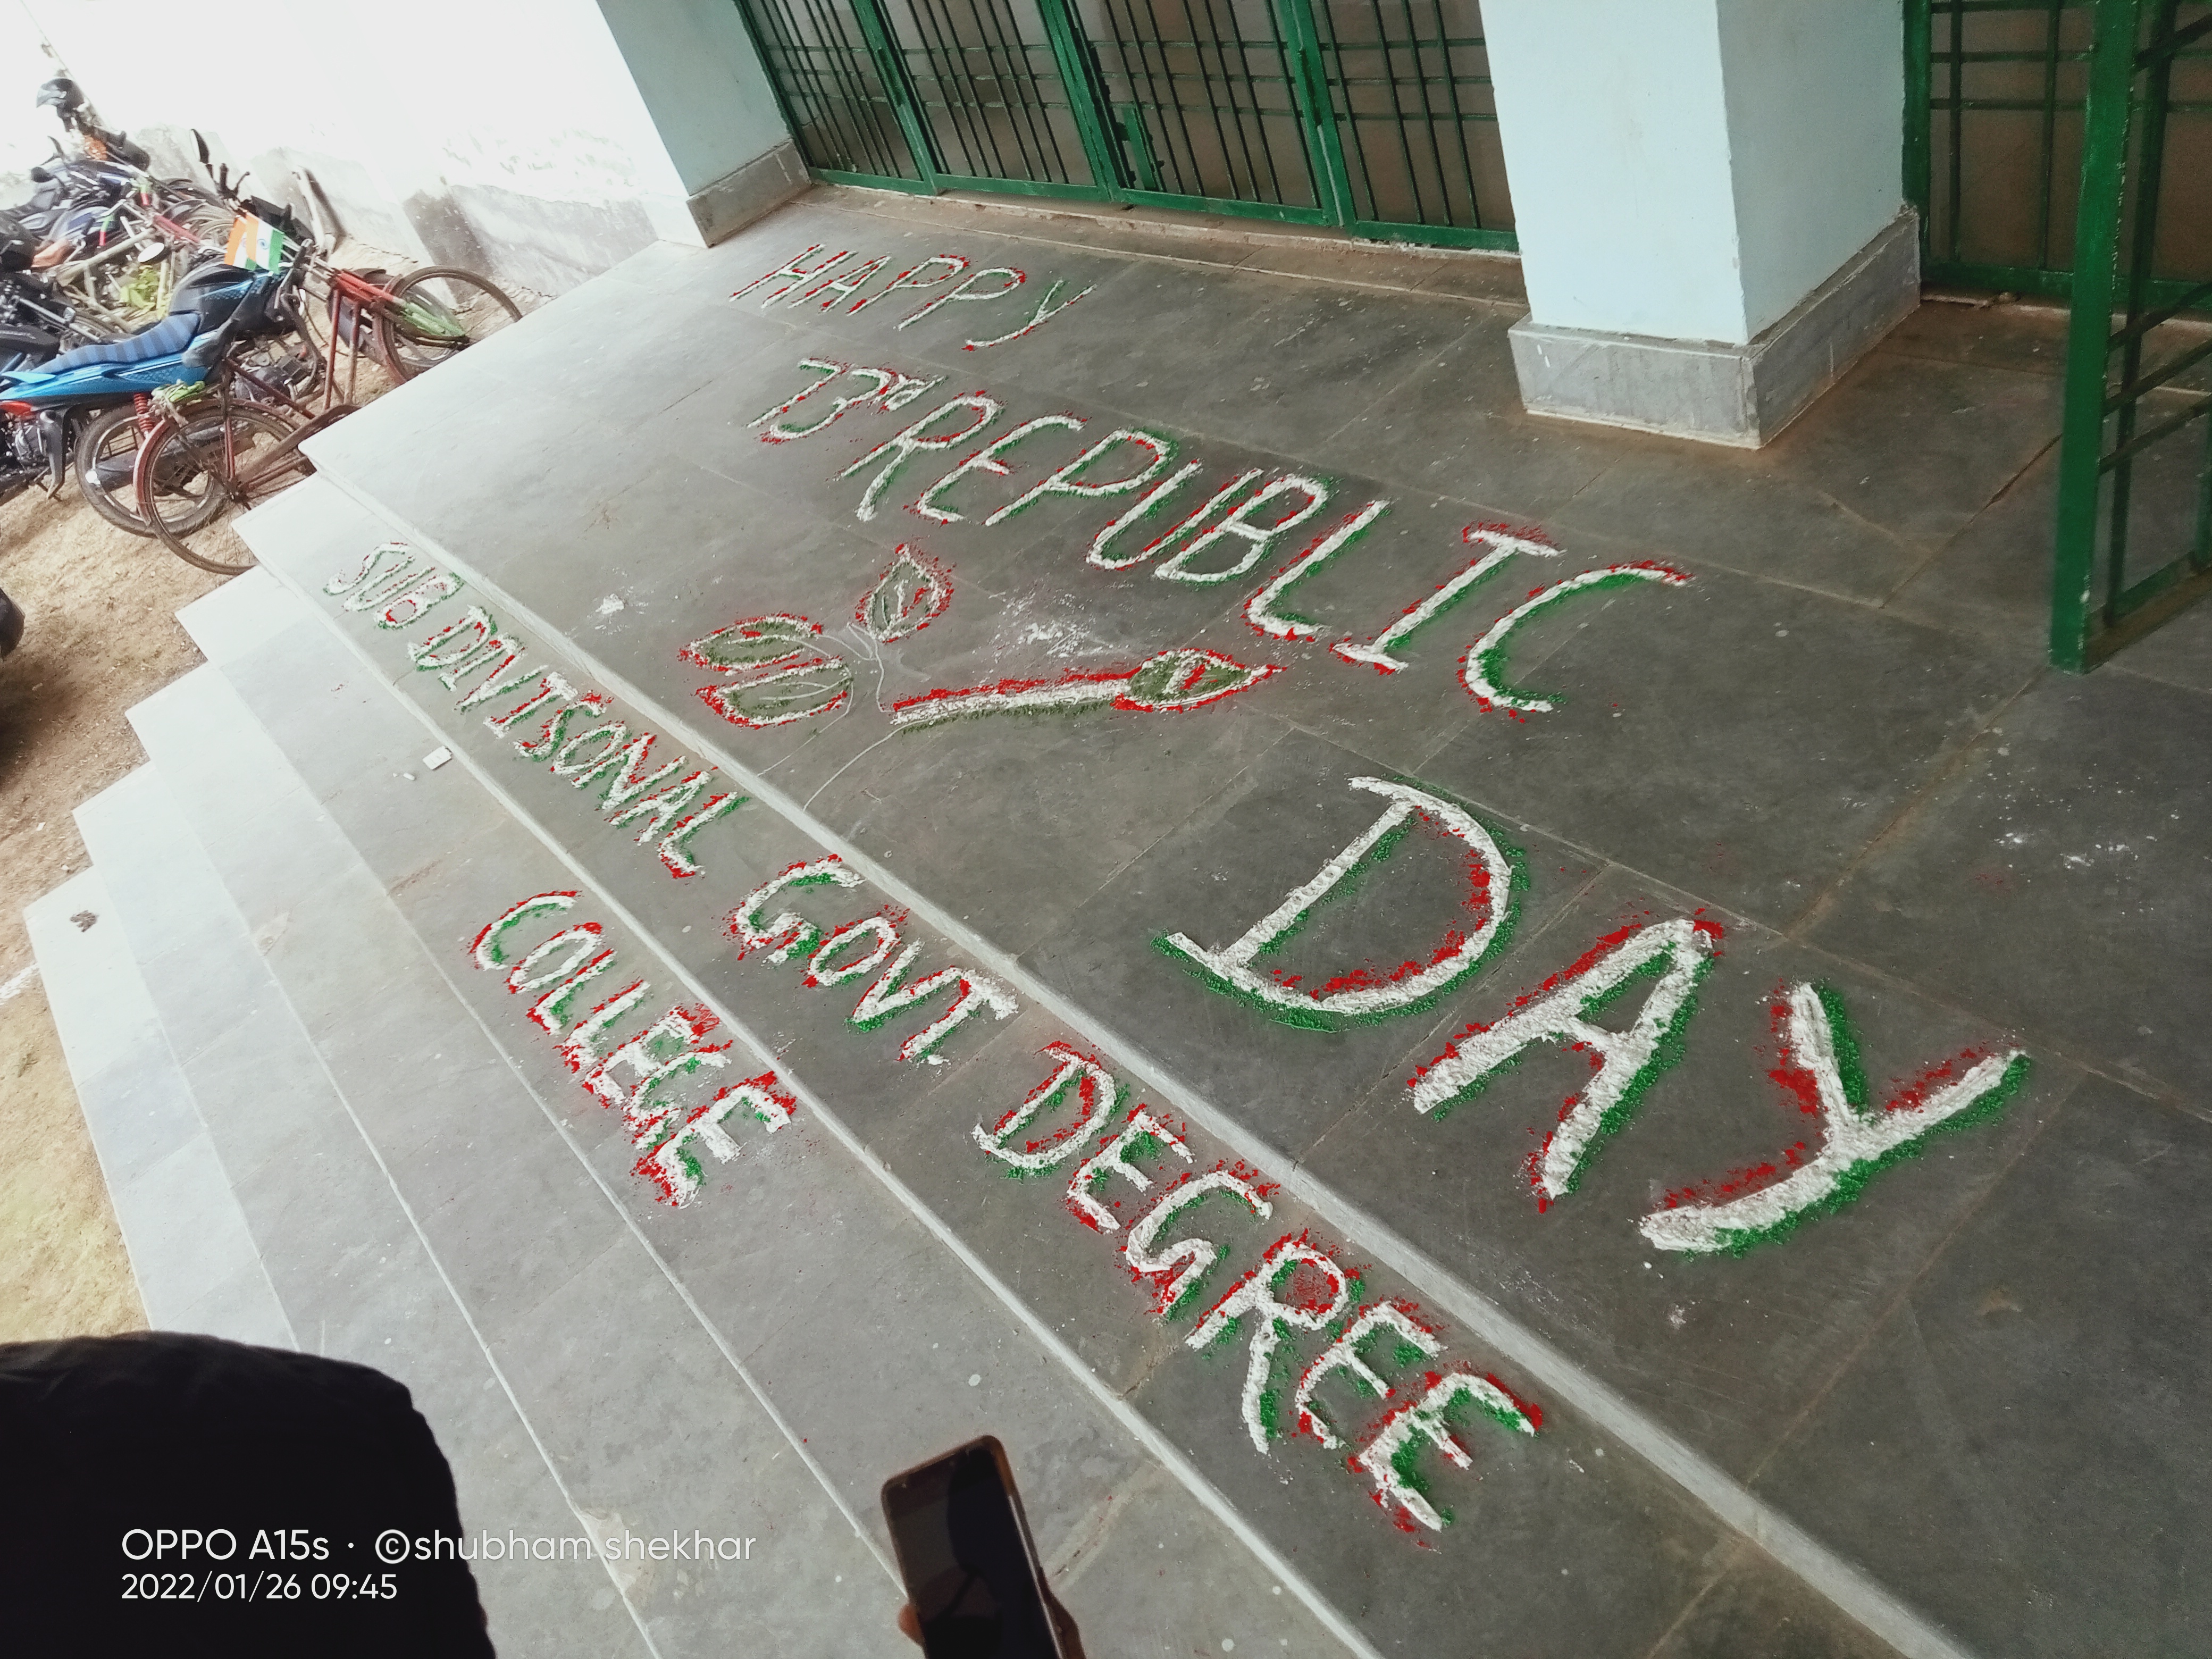 HAPPY
73rd REPUBLIC
DAY
SUB DIVISONAL GOVT DEGREE
COLLEGE
OPPO A15s · ©shubham shekhar
2022/01/26 09:45